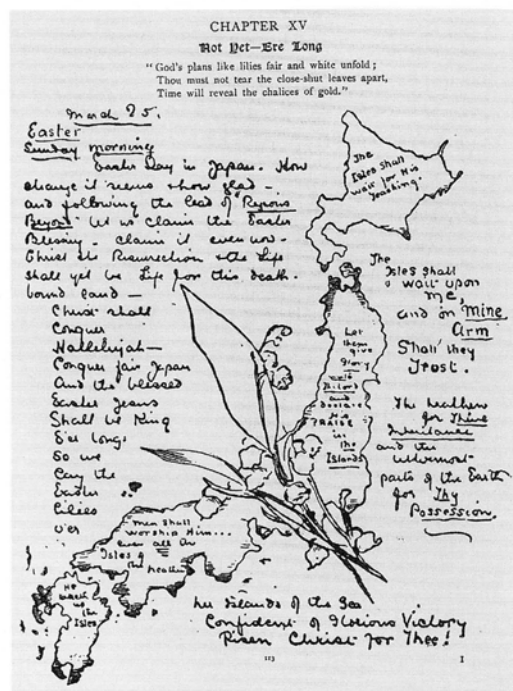 CHAPTER XV
Not Yet—Ere Long
"God's plans like lilies fair and white unfold;
Thou must not tear the close-shut leaves apart,
Time will reveal the chalices of gold."
March 25.
Easter
Sunday morning
Easter Day in Japan. How
it seems & how glad -
and following the lead of Regions
Beyond let us claim the Easter
Blessing - claim it even now -
Christ the Resurrection & the Life
Shall yet be Life for this death-
bound land -
Christ shall
Conquer
Hallelujah -
Conquer fair Japan
And the blessed
Easter Jesus
Shall be King
E're long,
So we
Lay the
Easter
Lilies
o'er
The
Isles shall
wait for His
teaching.
The
Isles shall
wait upon
me,
and on Mine
Arm
Shall they
Trust.
Let
them give
Glory
unto
the Lord
and
declare
His
PRAISE
in
the
Islands
The heathen
for Thine
Inheritance
and the
uttermost
parts of the Earth
for Thy
Possession.
Men shall
worship Him...
even all the
Isles of
the heathen
the
Isles
The Islands of the Sea
Confident of Glorious Victory
Risen Christ for Thee!
113
I